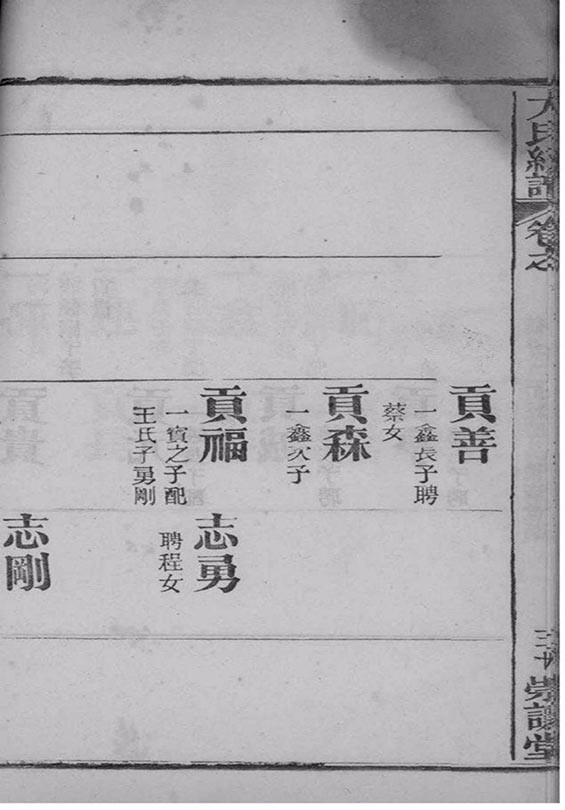 氏統譜
卷之
崇讓堂
貢善
一鑫長子聘
蔡女
貢森
一鑫次子
貢福
一賓之子配
王氏子勇剛
志勇
聘程女
志剛